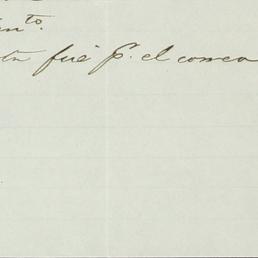 nto.
ta fué p. el correo